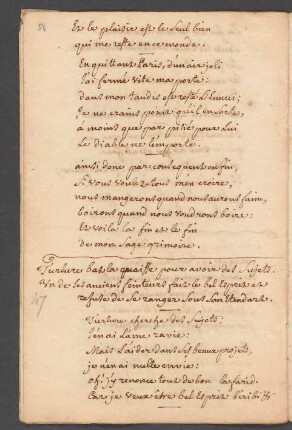 86
Et le plaisir est le seul bien
qui me reste en ce monde.
En quittant Paris, d'un air joli
J'ai fermé vite ma porte:
dans mon taudis est resté l'
Je ne crains point qu'il en sorte,
à moins que par pitié pour lui
Le diable ne l'emporte.
ainsi donc par consequent enfin,
Si vous voulez tous m'en croire,
nous mangerons quand nous aurons faim,
boirons quand nous voudrons boire:
Et voila la fin et le fin
de mon sage grimoire.
Turlure bat la quaisse pour avoir des Sujets.
Un de ses anciens fait le bel Esprit et
refuse de se ranger sous son Etendart.
47
Turlure cherche des Sujets;
J'en ai l'ame ravie:
Mais l'aider dans ses beaux projets,
je n'en ai nulle envie:
oh! j'y renonce tout de bon la
Car je veux être bel Esprit biribi &c